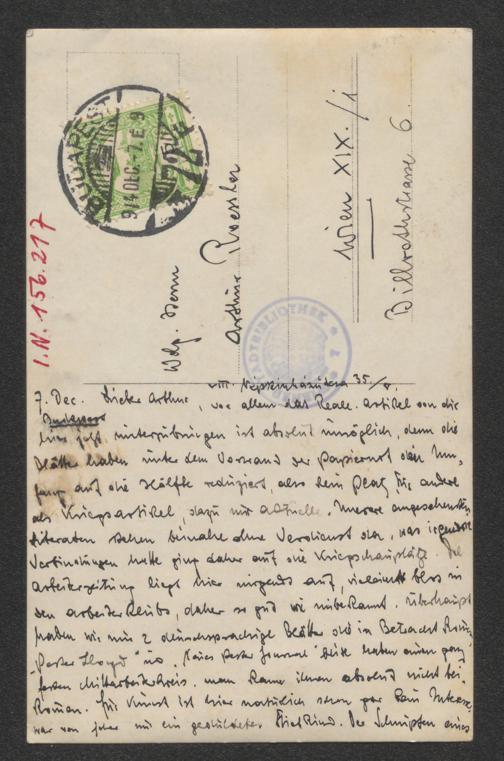 BUDAPEST
914 DEC.-7. E 9
72 F
I.N. 156.217
Wdg. Herrn
Arthur Roessler
Wien XIX./1
Billrothstrasse 6.
STADTBIBLIOTHEK
VIII. Népszinház utca 35/
7. Dec. Lieber Arthur, vor allem das Reale. Artikel von dir
Budapest
hier jetzt unterzubringen ist absolut unmöglich, denn die
Blätter haben unter dem Vorwand der Papiernot den Um-
fang auf die Hälfte reduziert, also kein Platz für andere
als Kriegsartikel, dazu nur aktuelle. Unsere angesehensten
Literaten stehen beinahe ohne Verdienst da, was irgendwie
Verbindungen hatte ging daher auf die Kriegsschauplätze. Die
Arbeiterzeitung liegt hier nirgends auf, vielleicht bloss in
den Arbeiterklubs, daher so gut wie unbekannt. Überhaupt
haben wir nur 2 deutschsprachige Blätter die in Betracht kom.
"Pester Lloyd" u. "Neues Pester Journal" beide haben einen ganz
festen Mitarbeiterkreis. man kann ihnen absolut nicht bei-
kommen. Für Kunst ist hier natürlich schon gar kein Interesse,
war von jeher nur ein geduldetes Stiefkind. Der Schnupfen eines